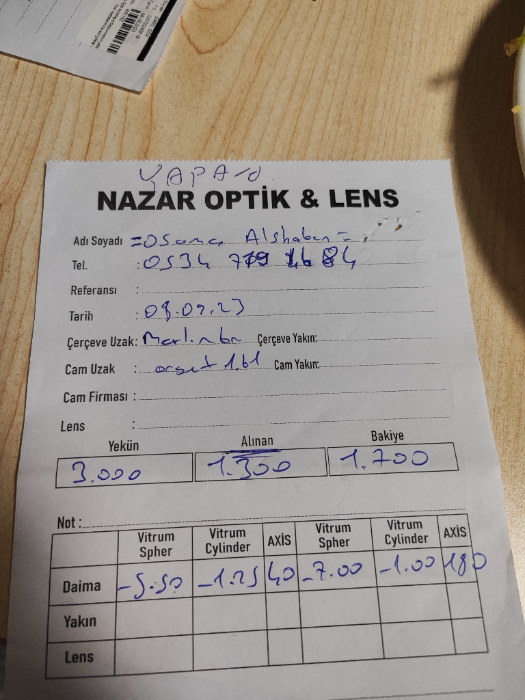 YAPA
NAZAR OPTİK & LENS
Adı Soyadı =Osama Alshaban=
Tel. :0534 84
Referansı :
Tarih : 08.09.23
Çerçeve Uzak: Çerçeve Yakın:
Cam Uzak : 1.61 Cam Yakın:
Cam Firması :
Lens :
Yekün Alınan Bakiye
3.000 1.300 1.700
Not :
Vitrum Spher Vitrum Cylinder AXİS Vitrum Spher Vitrum Cylinder AXİS
Daima -5.50 -1.25 40 -7.00 -1.00 180
Yakın
Lens